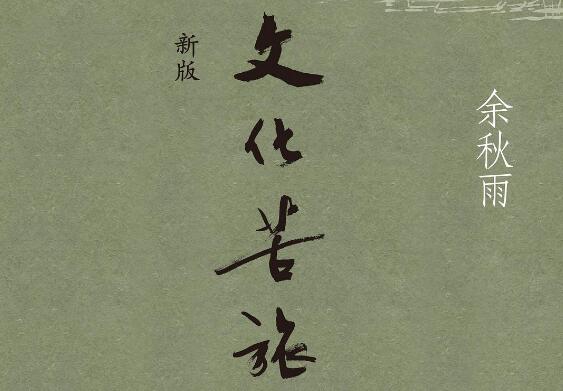 新版
文化苦旅
余秋雨